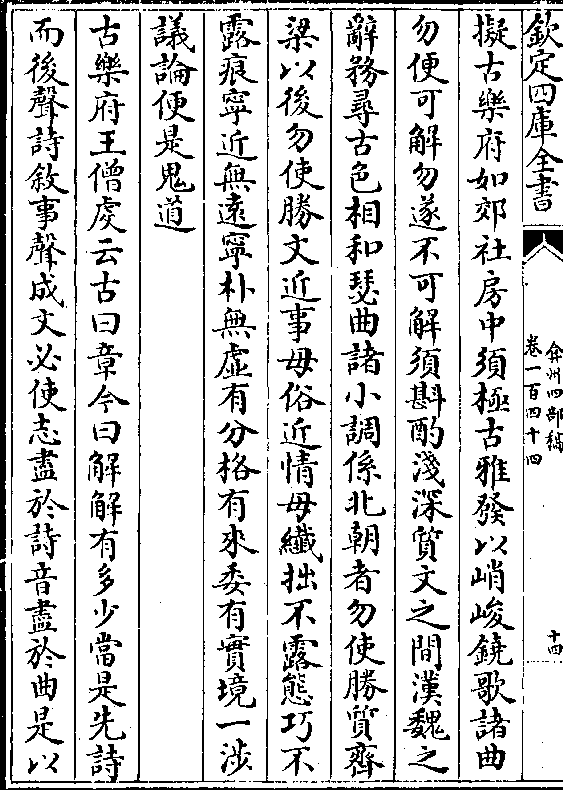 欽定四庫全書
弇州四部稿
卷一百四十四
十四
擬古樂府如郊社房中須極古雅發以峭峻鐃歌諸曲
勿便可解勿遂不可解須斟酌淺深質文之間漢魏之
辭務尋古色相和瑟曲諸小調係北朝者勿使勝質齊
梁以後勿使勝文近事毋俗近情毋纖拙不露態巧不
露痕寧近無遠寧朴無虛有分格有來委有實境一涉
議論便是鬼道
古樂府王僧虔云古曰章今曰解解有多少當是先詩
而後聲詩敘事聲成文必使志盡於詩音盡於曲是以